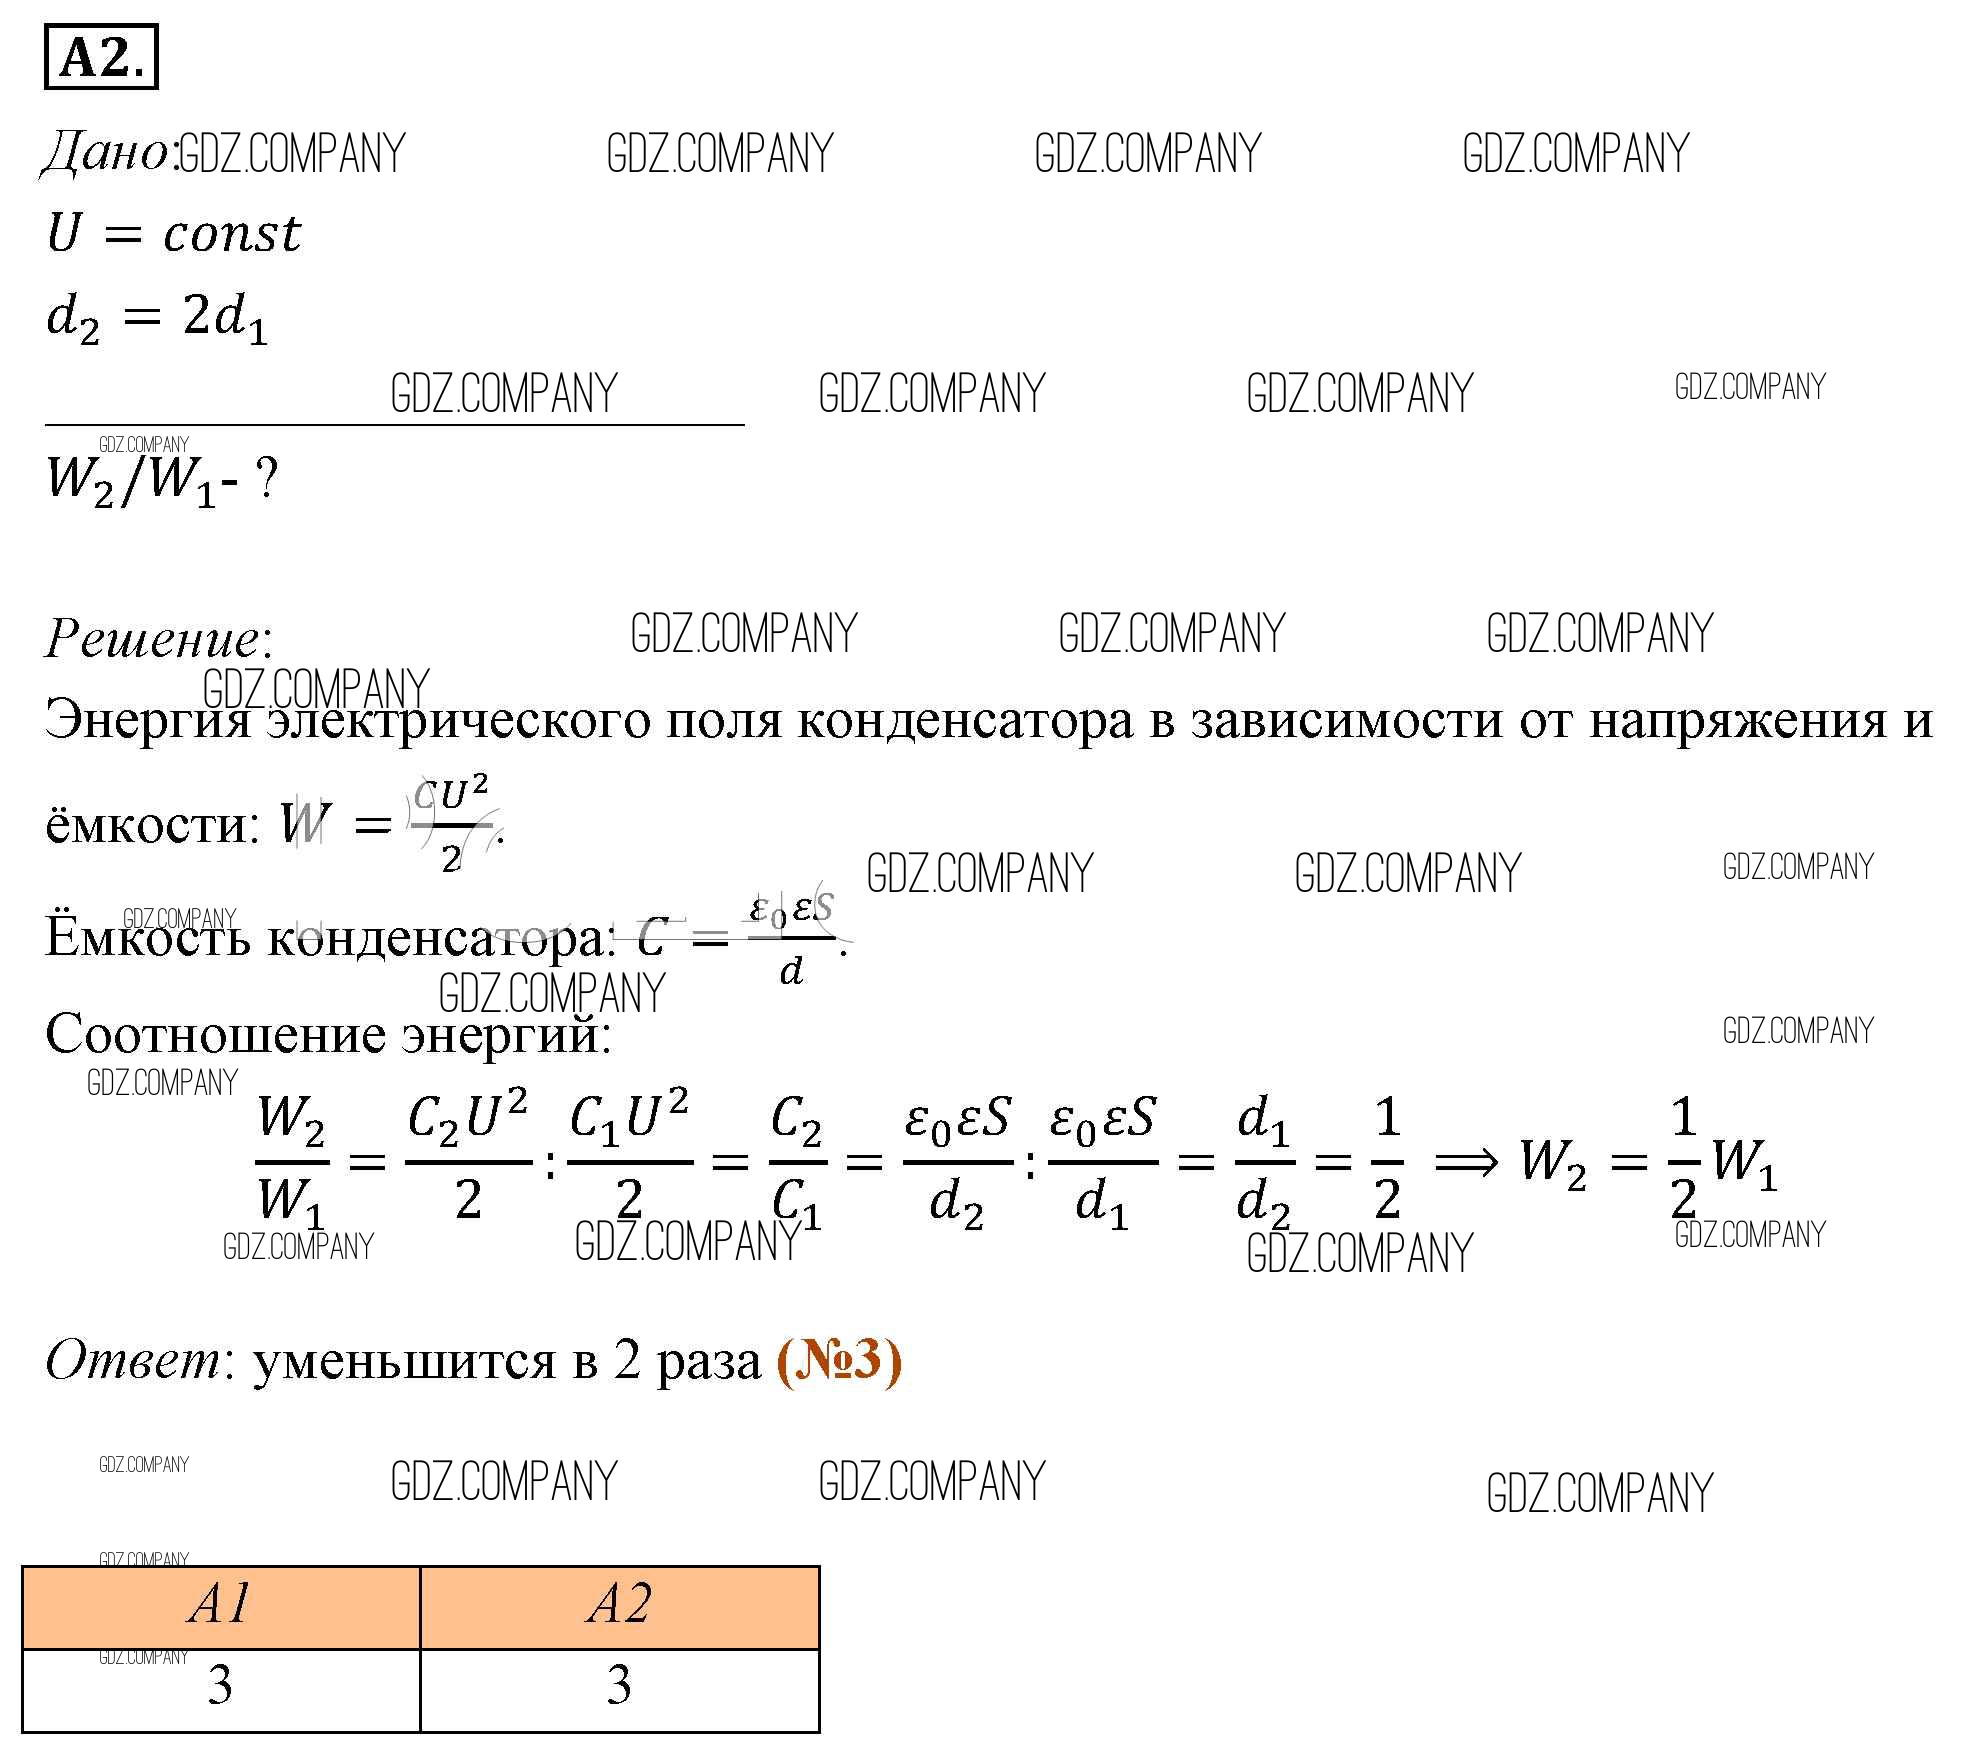 А2.
Дано: GDZ.COMPANY GDZ.COMPANY GDZ.COMPANY GDZ.COMPANY
U = const
d₂ = 2d₁
GDZ.COMPANY GDZ.COMPANY GDZ.COMPANY GDZ.COMPANY
GDZ.COMPANY
W₂/W₁- ?
Решение: GDZ.COMPANY GDZ.COMPANY GDZ.COMPANY
GDZ.COMPANY
Энергия электрического поля конденсатора в зависимости от напряжения и
ёмкости: W = CU²/2.
GDZ.COMPANY GDZ.COMPANY GDZ.COMPANY
GDZ.COMPANY
Ёмкость конденсатора: C = ε₀εS/d.
GDZ.COMPANY
Соотношение энергий: GDZ.COMPANY
GDZ.COMPANY
W₂/W₁ = C₂U²/2 : C₁U²/2 = C₂/C₁ = ε₀εS/d₂ : ε₀εS/d₁ = d₁/d₂ = 1/2 ⟹ W₂ = 1/2 W₁
GDZ.COMPANY GDZ.COMPANY GDZ.COMPANY GDZ.COMPANY
Ответ: уменьшится в 2 раза (№3)
GDZ.COMPANY GDZ.COMPANY GDZ.COMPANY GDZ.COMPANY
GDZ.COMPANY
А1 А2
GDZ.COMPANY
3 3